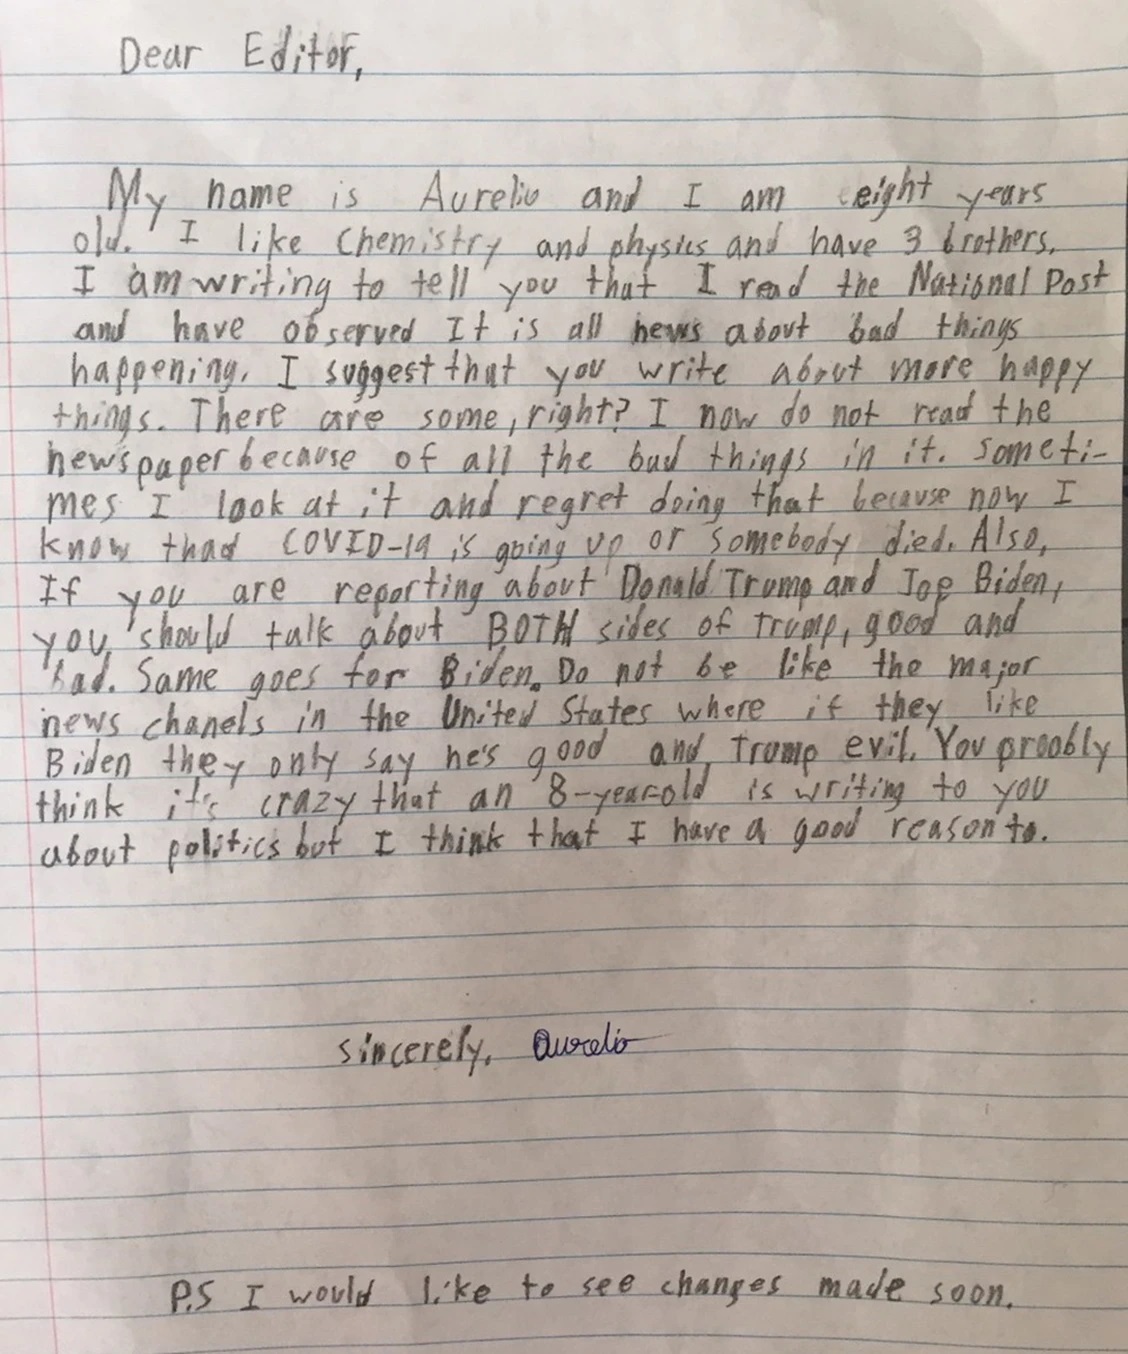 Dear Editor,
My name is Aurelio and I am eight years
old. I like Chemistry and physics and have 3 brothers.
I am writing to tell you that I read the National Post
and have observed It is all news about bad things
happening. I suggest that you write about more happy
things. There are some, right? I now do not read the
newspaper because of all the bad things in it. Someti-
mes I look at it and regret doing that because now I
know thad COVID-19 is going up or somebody died. Also,
If you are reporting about Donald Trump and Joe Biden,
you should talk about BOTH sides of Trump, good and
bad. Same goes for Biden. Do not be like the major
news chanels in the United States where if they like
Biden they only say he's good and Trump evil. You proobly
think it's crazy that an 8-year-old is writing to you
about politics but I think that I have a good reason to.
sincerely, Aurelio
P.S I would like to see changes made soon.